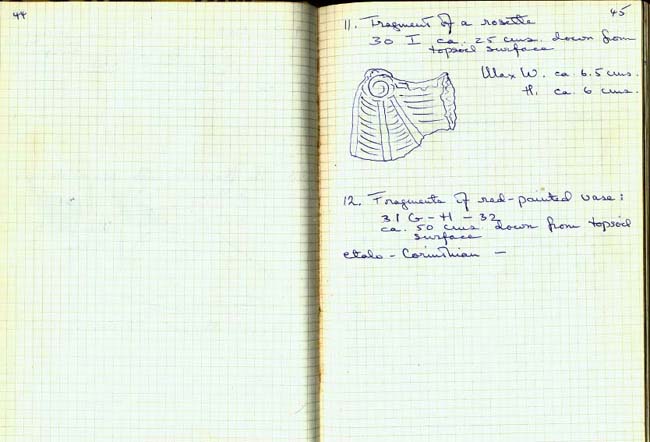 44
45
11. Fragment of a rosette
30 I ca. 25 cms. down from
topsoil surface
Max W. ca 6.5 cms.
H. ca 6 cms.
12. Fragments of red-painted vase:
31 G - H - 32
ca. 50 cms. down from topsoil
surface
etalo - Corinthian -